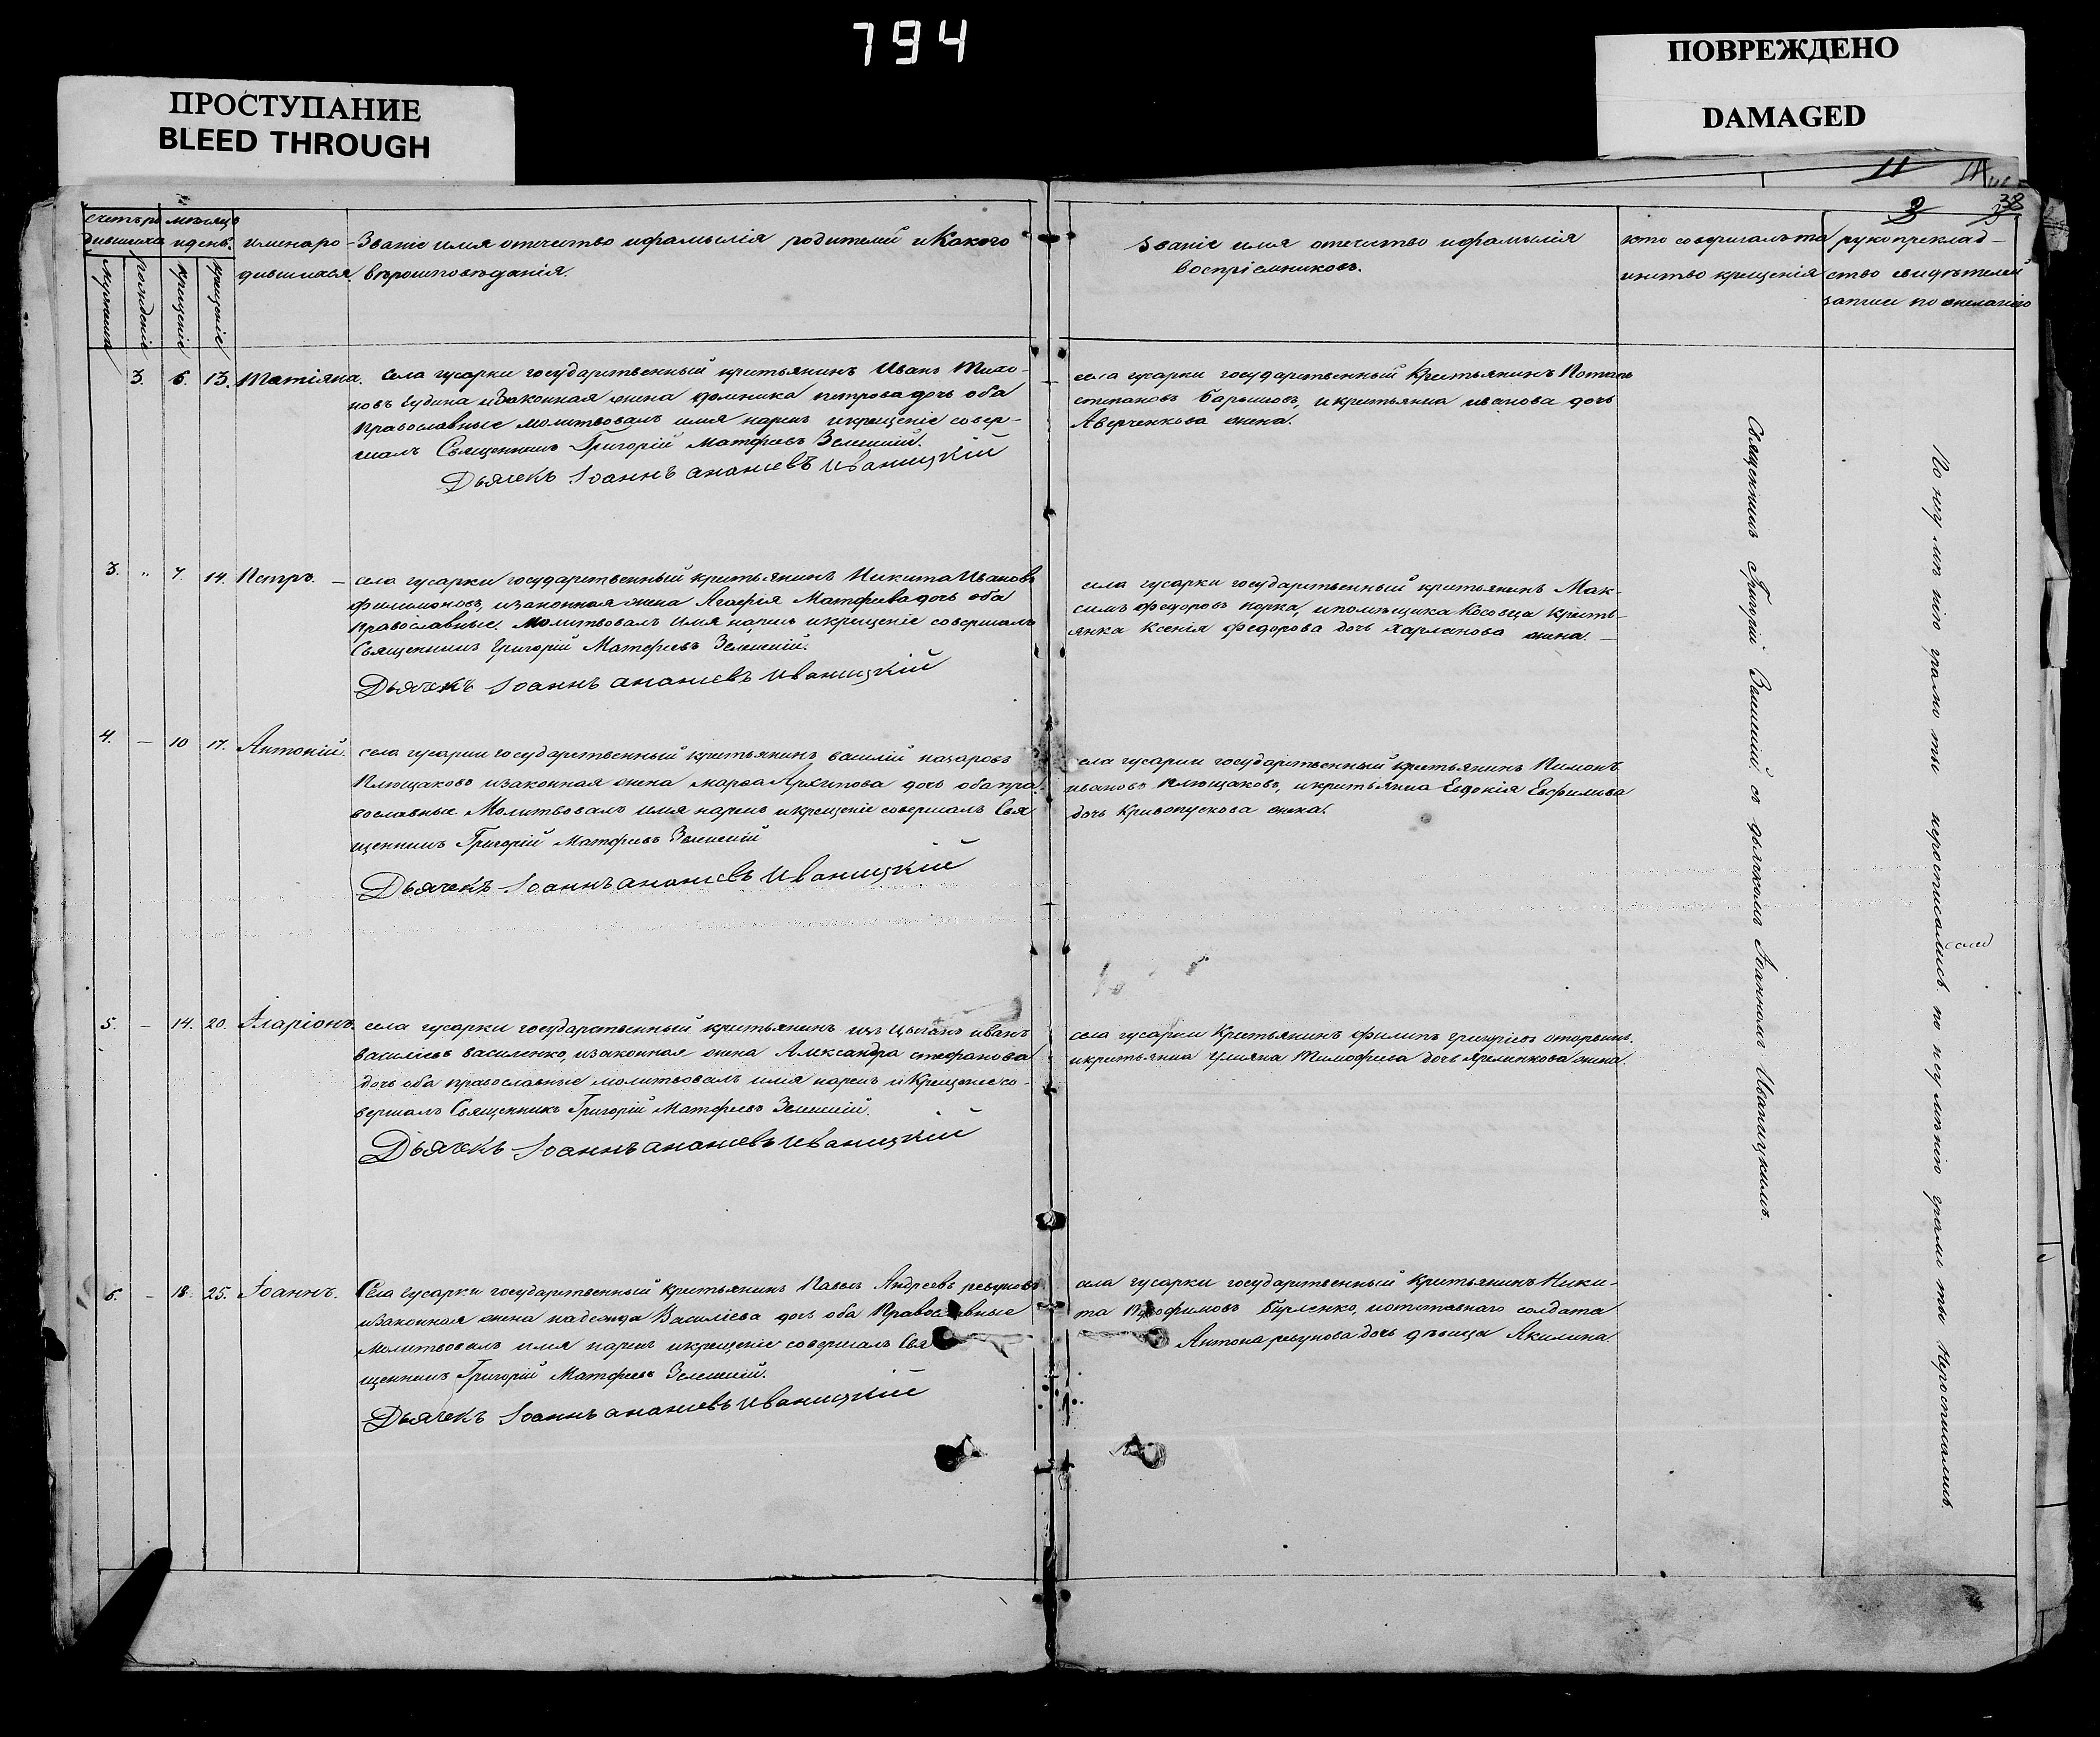 794
ПРОСТУПАНИЕ
BLEED THROUGH
ПОВРЕЖДЕНО
DAMAGED
11
38
счетъ ро
дившихся
мѣсяцъ
и день.
имена ро-
дившихся.
Званіе имя отечество и фамылія родителей и Какого
вѣроисповѣданія.
рожденіе
крещеніе
Званіе имя отечество и фамылія
воспріемниковъ.
кто совершалъ та
инство крещенія
рукоприклад-
ство свидѣтелей
записи по желанію
3. 6. 13. Татіяна. Села гусарки государственный крестьянинъ Иванъ Тихо-
новъ и законная жена домника петрова дочь оба
православные молитвовалъ имя нарекъ и крещеніе совер-
шалъ Священникъ Григорій Матфеевъ
Дьячекъ Іоаннъ ананіевъ иваницкій
села гусарки государственный Крестьянинъ Потапъ
степановъ и крестьянка иванова дочь
Аверченкова жена.
3. „ 7. 14. Петръ. — села гусарки государственный крестьянинъ Никита Ивановъ
филимоновъ, и законная жена Агафія Матфеева дочь оба
православные. Молитвовалъ имя нарекъ и крещеніе совершалъ
Священникъ Григорій Матфеевъ
Дьячекъ Іоаннъ ананіевъ иваницкій
села гусарки государственный крестьянинъ Мак-
симъ федоровъ корка, и помѣщика Косовца кресть-
янка Ксенія федорова дочь харланова жена. —
4. — 10 17. Антоній. села гусарки государственный крестьянинъ василій назаровъ
Плющаковъ и законная жена марфа Архипова дочь оба пра-
вославные Молитвовалъ имя нарекъ и крещеніе совершалъ Свя
щенникъ Григорій Матфеевъ
Дьячекъ Іоаннъ ананіевъ иваницкій
села гусарки государственный крестьянинъ Пимонъ
ивановъ плющаковъ, и крестьянка Евдокія
дочь Кривопускова жена.
5. — 14. 20. Іларіонъ. села гусарки государственный крестьянинъ изъ цыганъ иванъ
василіевъ василенко, и законная жена Александра стефанова
дочь оба православные молитвовалъ имя нарекъ и Крещеніе со-
вершалъ Священникъ Григорій Матфеевъ
Дьячекъ Іоаннъ ананіевъ иваницкій
села гусарки Крестьянинъ филипъ григоріевъ
и крестьянка уліяна Тимофеева дочь жена.
6. — 18. 25. Іоаннъ. Села гусарки государственный крестьянинъ Павелъ Андреевъ ревуновъ
и законная жена надежда Василіева дочь оба Православные
Молитвовалъ имя нарекъ и крещеніе совершалъ Свя
щенникъ Григорій Матфеевъ
Дьячекъ Іоаннъ ананіевъ иваницкій
села гусарки государственный Крестьянинъ Ники-
та трофимовъ и отставнаго солдата
Антона ревунова дочь дѣвица Акилина.
Священникъ Григорій съ дьячкомъ Іоанномъ Иваницкимъ.
По неумѣнію грамоты неросписались. по неумѣнію грамоты неросписались.